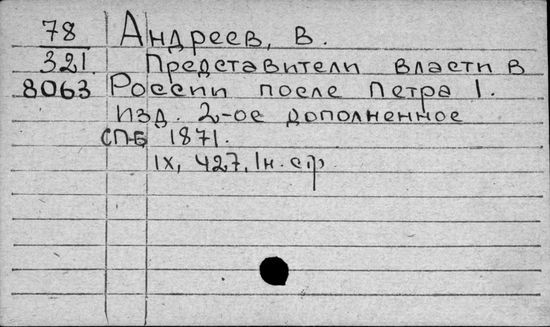 78 Андреев, В.
321 Представители власти в
8063 России после Петра I.
Изд. 2-ое дополненное
СПБ 1871.
IX, 427, 1н. стр.